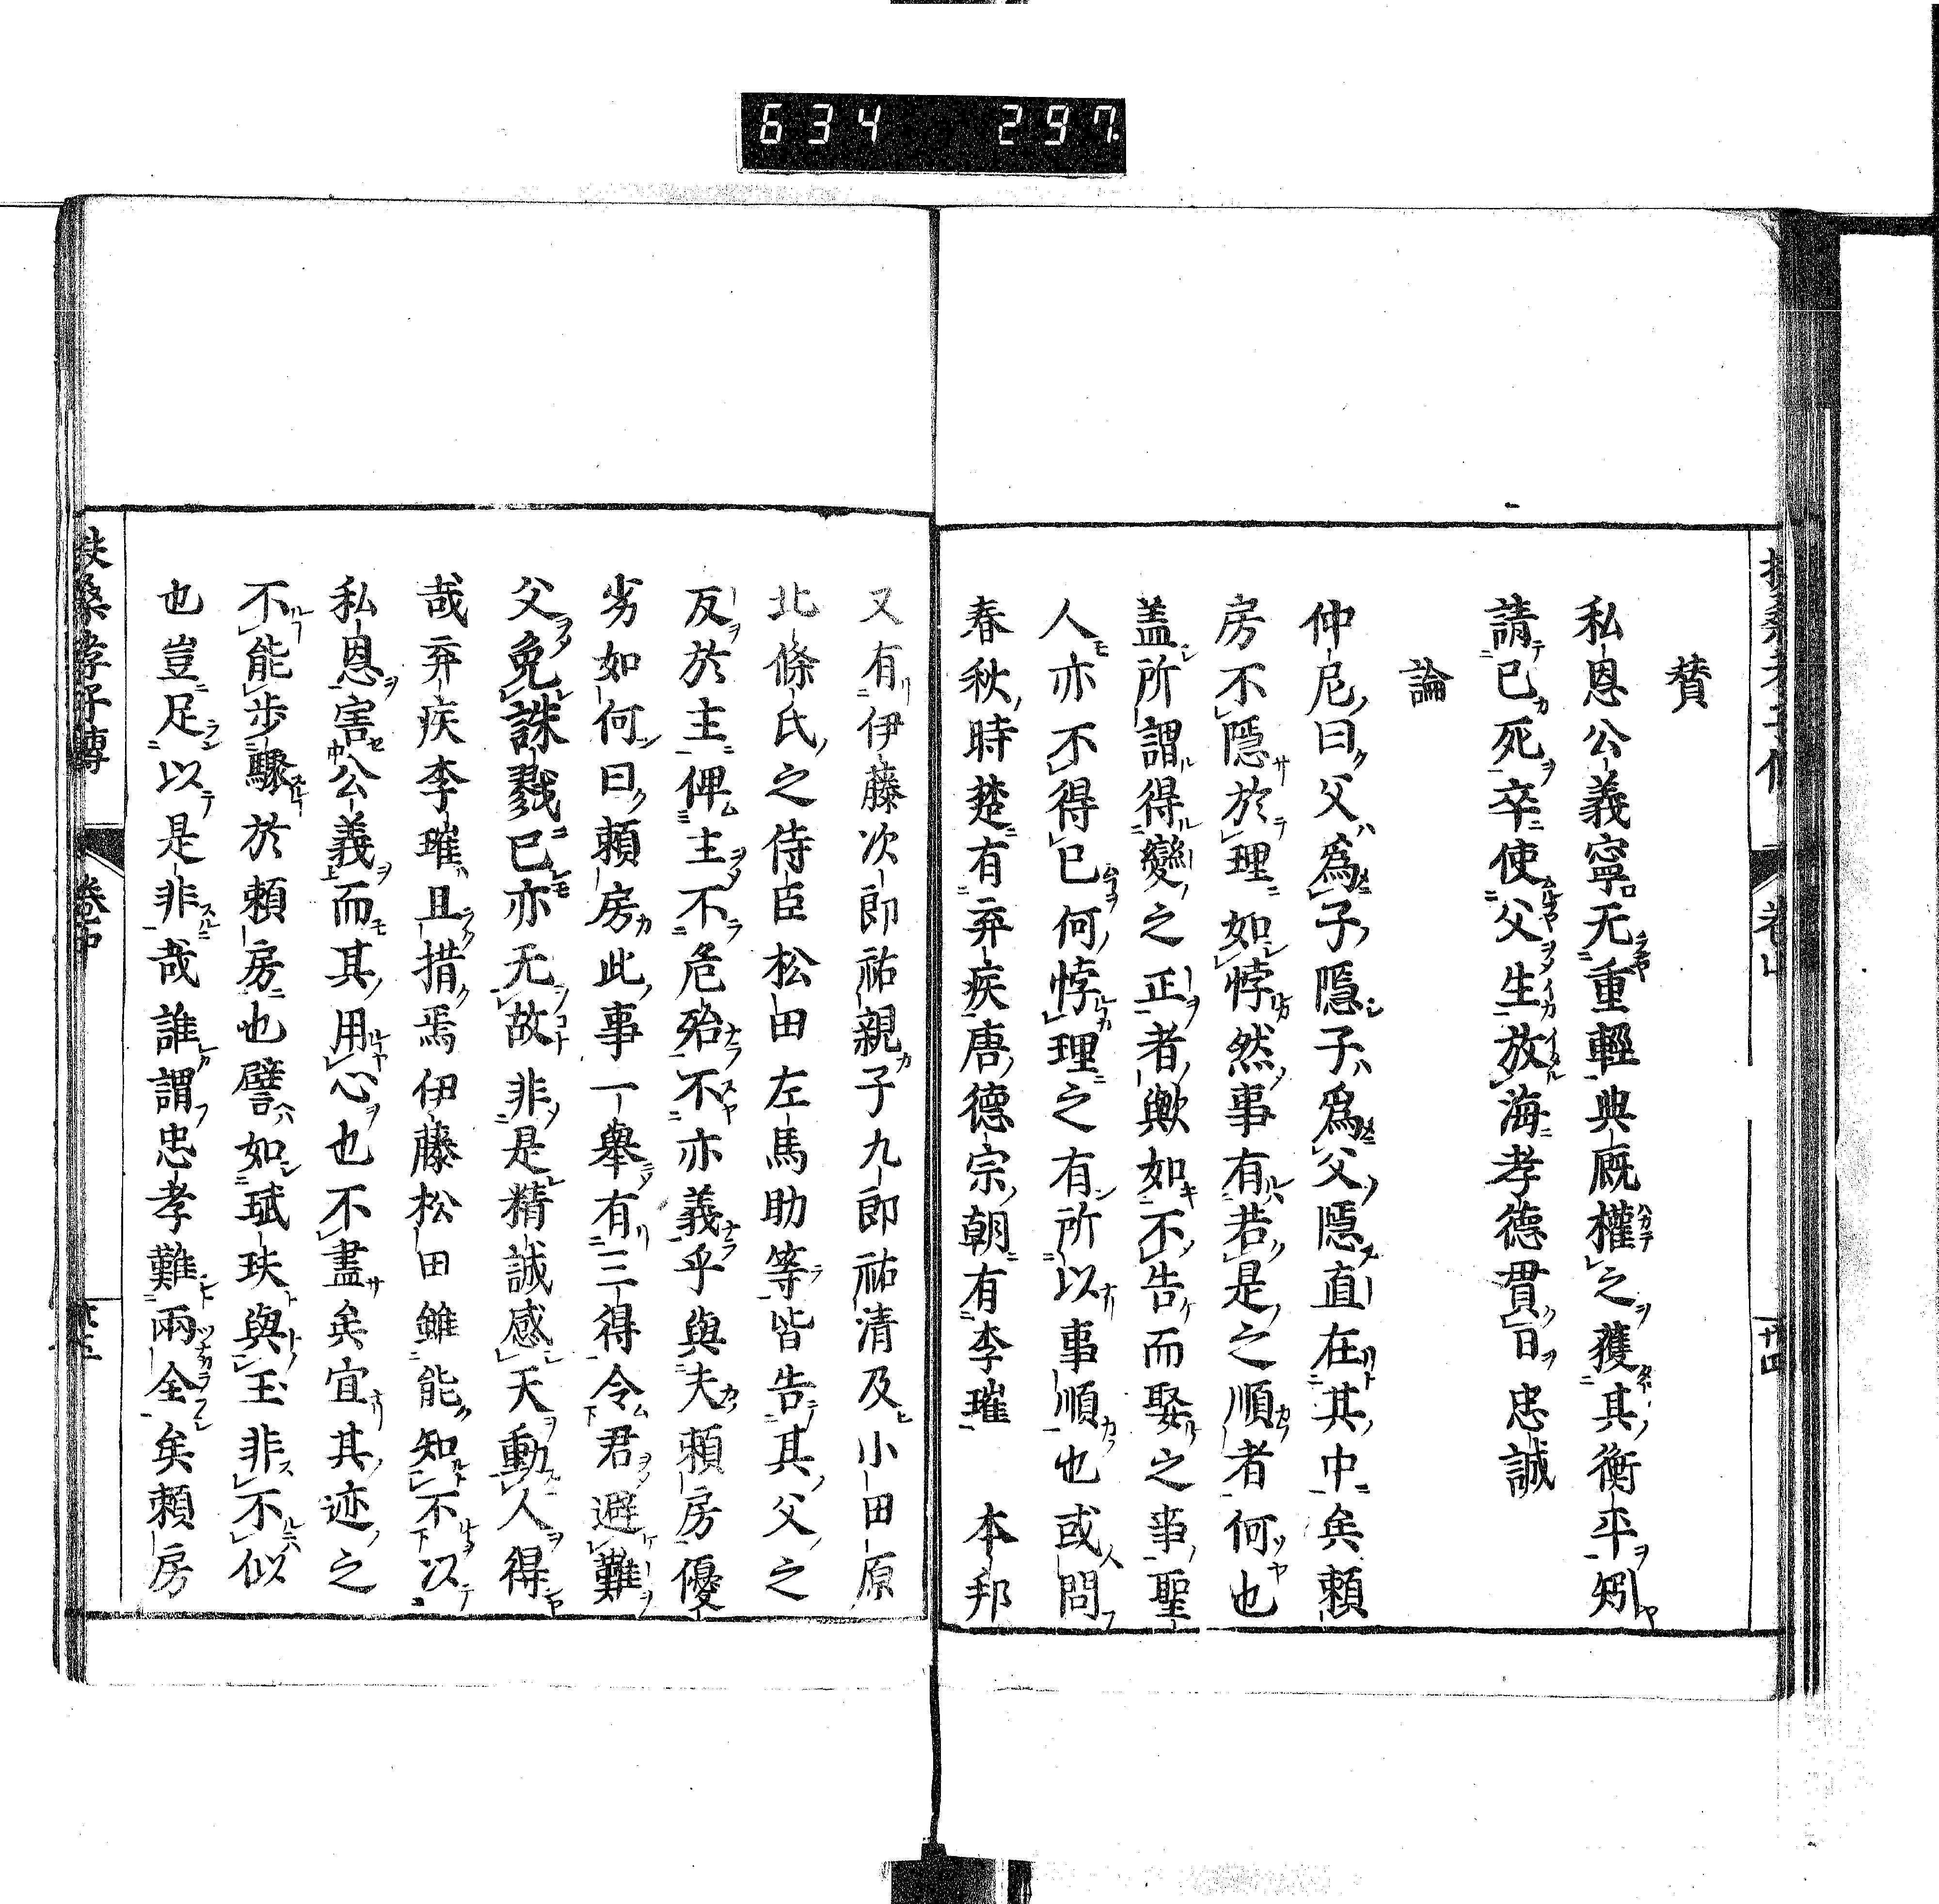 634 297
賛
私恩公義寧无重輕典厩權之獲其衡平矧
請已死卒使父生放海孝德貫日忠誠
論
仲尼曰父爲子隱子爲父隱直在其中矣頼
房不隱於理如悖然事有若是之順者何也
盖所謂得變之正者歟如不告而娶之事聖
人亦不得已何悖理之有所以事順也或問
春秋時楚有弃疾唐德宗朝有李璀 本邦
又有伊藤次郎祐親子九郎祐清及小田原
北條氏之侍臣松田左馬助等皆告其父之
反於主俾主不危殆不亦義乎與夫頼房優
劣如何曰頼房此事一舉有三得令君避難
父免誅戮已亦无故非是精誠感天動人得
哉弃疾李璀且措焉伊藤松田雖能知不以
私恩害公義而其用心也不盡矣宜其迹之
不能步驟於頼房也譬如珷玞與玉非不似
也豈足以是非哉誰謂忠孝難兩全矣頼房
扶桑孝子傳 卷中